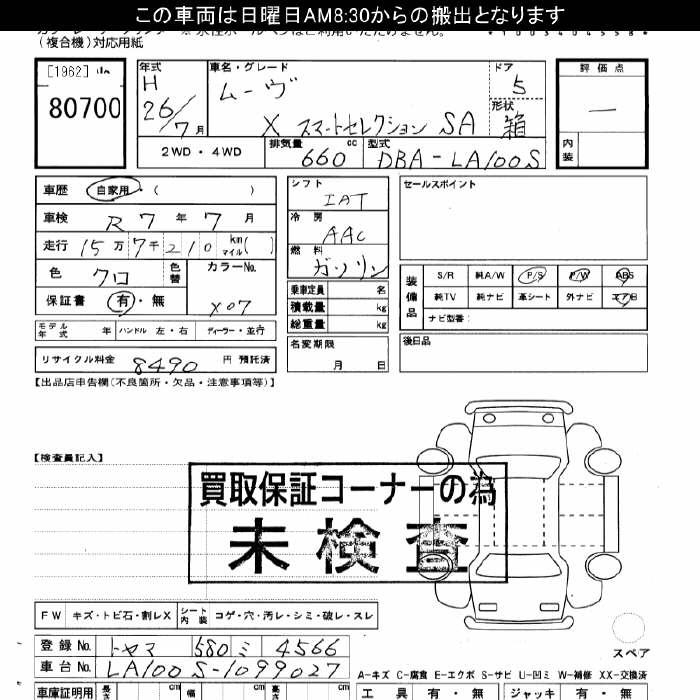 この車両は日曜日AM8:30からの搬出となります
(複合機)対応用紙
[1962]
80700
年式 車名・グレード ドア 評価点
H ムーヴ 5
26/7月 形状
X スマートセレクション SA 箱 一
2WD・4WD 排気量 660 cc 型式 DBA-LA100S 内装
車歴 自家用・( )
車検 R 7 年 7 月
走行 15万7千210 km マイル( )
色 クロ 色替 カラーNo.
保証書 有・無 X07
モデル年式 年 ハンドル 左・右 ディーラー・並行
リサイクル料金 8490 円 預託済
シフト IAT
冷房 AAC
燃料 ガソリン
乗車定員 名
積載量 kg
総重量 kg
名変期限
月 日
セールスポイント
装備品 S/R 純A/W P/S P/W ABS
純TV 純ナビ 革シート 外ナビ エアB
ナビ型番:
後日品
【出品店申告欄(不良箇所・欠品・注意事項等)】
【検査員記入】
買取保証コーナーの為
未検査
FW キズ・トビ石・割レX シート内装 コゲ・穴・汚レ・シミ・破レ・スレ
スペア
登録No. トヤマ 580 ミ 4566
車台No. LA100S-1099027
A-キズ C-腐食 E-エクボ S-サビ U-凹ミ W-補修 XX-交換済
車庫証明用 長さ cm 幅 cm 高さ cm 工具 有・無 ジャッキ 有・無